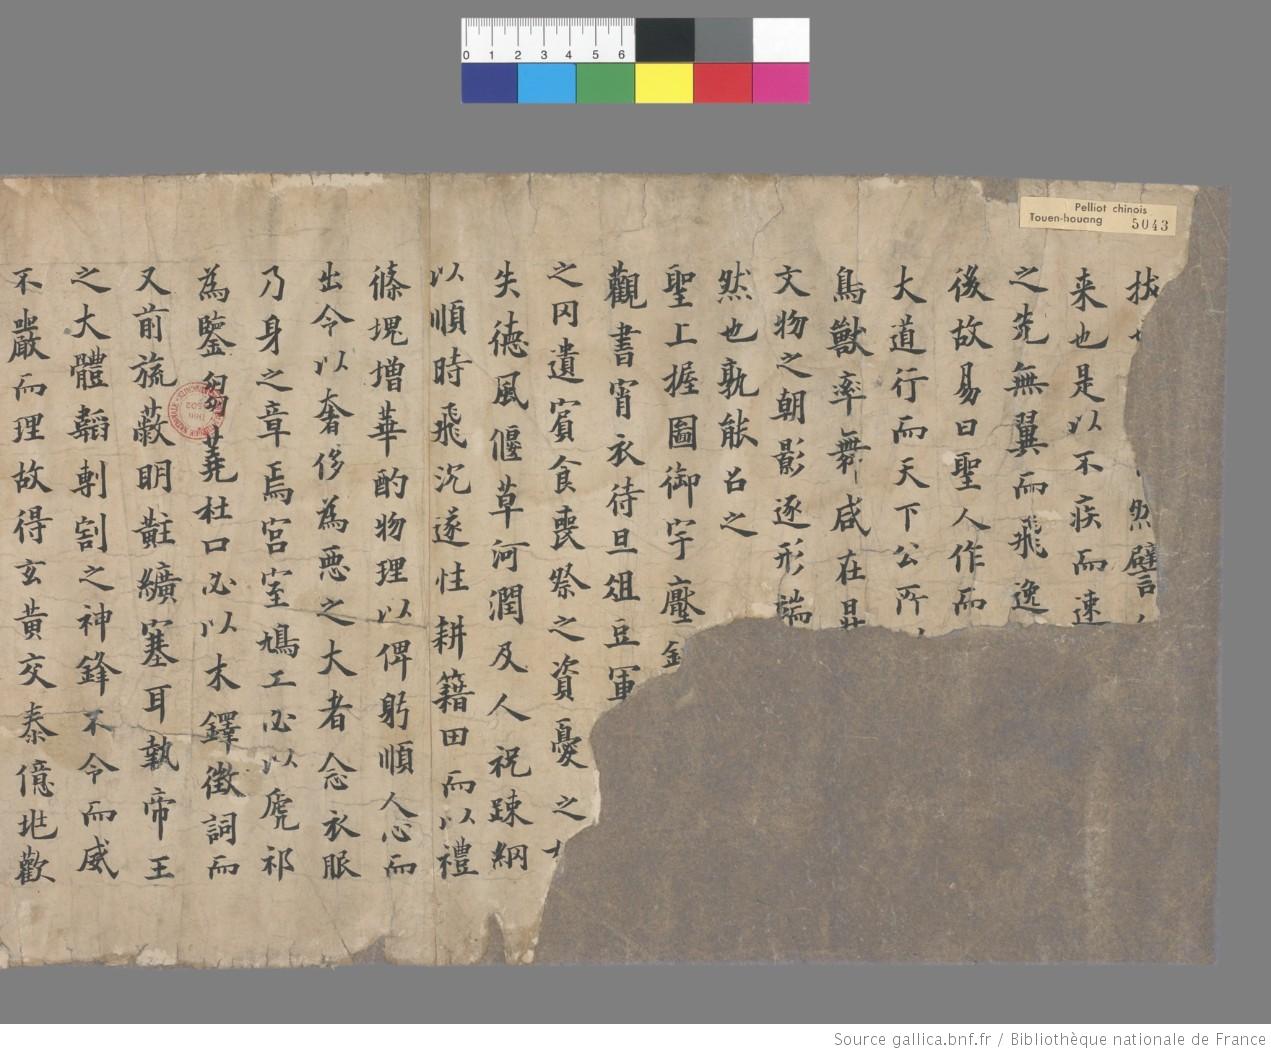 0 1 2 3 4 5 6
Pelliot chinois
Touen-houang 5043
拔
来也是以不疾而速
之先無翼而飛逸
後故易曰聖人作而
大道行而天下公所
鳥獸率舞咸在
文物之朝影逐形端
然也孰能召之
聖上握圖御宇壓
觀書宵衣待旦俎豆軍
之冈遺賓食喪祭之資憂之
失德風偃草河潤及人祝踈網
以順時飛沉遂性耕籍田而以禮
絛塊增華酌物理以俾躬順人心而
出令以奢侈為惡之大者念衣服
乃身之章焉宮室鳩工必以虎祁
為鑒芻蕘杜口必以木鐸徵詞而
又前旒蔽明黈纊塞耳執帝王
之大體韜剸割之神鋒不令而威
不嚴而理故得玄黃交泰億兆歡
Source gallica.bnf.fr / Bibliothèque nationale de France